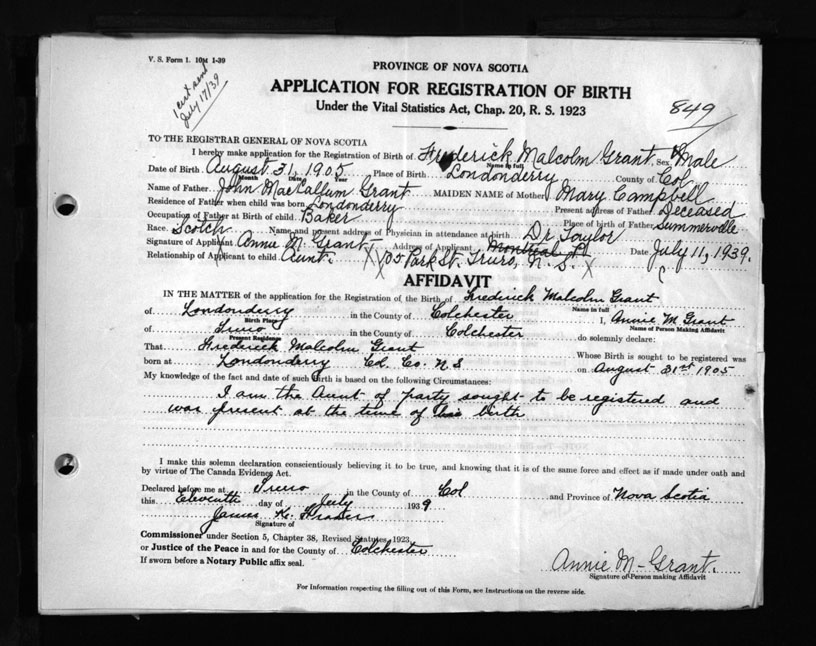 V. S. Form 1. 10M 1-39
1 cert sent
July 17/39
PROVINCE OF NOVA SCOTIA
APPLICATION FOR REGISTRATION OF BIRTH
Under the Vital Statistics Act, Chap. 20, R. S. 1923
849
TO THE REGISTRAR GENERAL OF NOVA SCOTIA
I hereby make application for the Registration of Birth of Frederick Malcolm Grant Sex Male
Name in full
Date of Birth August 31, 1905 Place of Birth Londonderry County of Col.
Month Date Year
Name of Father John MacCallum Grant MAIDEN NAME of Mother Mary Campbell
Residence of Father when child was born Londonderry Present address of Father Deceased
Occupation of Father at Birth of child Baker Place of birth of Father Summerville
Race. Scotch Name and present address of Physician in attendance at birth Dr Taylor
Signature of Applicant Annie M. Grant Address of Applicant Montreal Date July 11, 1939.
Relationship of Applicant to child Aunt. X 105 Park St. Truro, N. S. X
AFFIDAVIT
IN THE MATTER of the application for the Registration of the Birth of Frederick Malcolm Grant
Name in full
of Londonderry in the County of Colchester I, Annie M Grant
Birth Place Name of Person Making Affidavit
of Truro in the County of Colchester do solemnly declare:
Present Residence
That Frederick Malcolm Grant Whose Birth is sought to be registered was
born at Londonderry Col. Co. N S on August 31st 1905
My knowledge of the fact and date of such Birth is based on the following Circumstances:
I am the Aunt of party sought to be registered and
was present at the time of his birth
I make this solemn declaration conscientiously believing it to be true, and knowing that it is of the same force and effect as if made under oath and
by virtue of The Canada Evidence Act.
Declared before me at Truro in the County of Col and Province of Nova Scotia
this Eleventh day of July 1939
James K. Fraser
Signature of
Commissioner under Section 5, Chapter 38, Revised Statutes, 1923
or Justice of the Peace in and for the County of Colchester
If sworn before a Notary Public affix seal.
Annie M- Grant.
Signature of Person making Affidavit
For Information respecting the filling out of this Form, see Instructions on the reverse side.